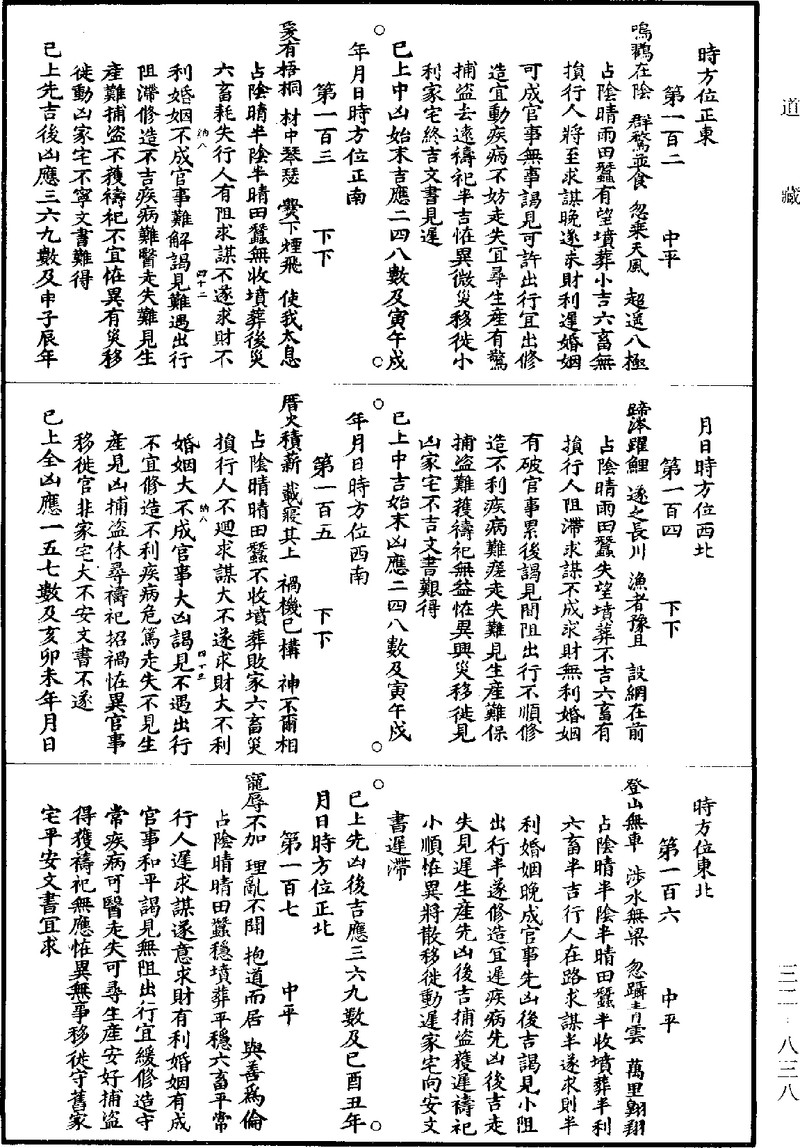 道藏
時方位正東
第一百二　中平
鳴鶴在陰　群鷖並食　忽乘天風　超遥八極
占陰晴雨田蠶有望墳葬小吉六畜無
損行人將至求謀晚遂求財利遲婚姻
可成官事無事謁見可許出行宜出修
造宜動疾病不妨走失宜尋生産有驚
捕盗去遠禱祀半吉恠異微災移徙小
利家宅終吉文書見遲
已上中凶始末吉應二四八數及寅午戌
年月日時方位正南
第一百三　下下
爰有梧桐　材中琴瑟　爨下煙飛　使我太息
占陰晴半陰半晴田蠶無收墳葬後災
六畜耗失行人有阻求謀不遂求財不
納八　四十二
利婚姻不成官事難解謁見難遇出行
阻滯修造不吉疾病難醫走失難見生
產難捕盗不獲禱祀不宜恠異有災移
徙動凶家宅不寧文書難得
已上先吉後凶應三六九數及申子辰年
月日時方位西北
第一百四　下下
蹄涔躍鯉　遂之長川　漁者豫且　設網在前
占陰晴雨田蠶失望墳葬不吉六畜有
損行人阻滯求謀不成求財無利婚姻
有破官事累後謁見間阻出行不順修
造不利疾病難瘥走失難見生產難保
捕盗難獲禱祀無益恠異興災移徙見
凶家宅不吉文書艱得
已上中吉始末凶應二四八數及寅午戌
年月日時方位西南
第一百五　下下
厝火積薪　載寢其上　禍機已構　神不爾相
占陰晴晴田蠶不收墳葬敗家六畜災
損行人不迴求謀大不遂求財大不利
納八　四十三
婚姻大不成官事大凶謁見不遇出行
不宜修造不利疾病危篤走失不見生
產見凶捕盗休尋禱祀招禍恠異官事
移徙官非家宅大不安文書不遂
已上全凶應一五七數及亥卯未年月日
時方位東北
第一百六　中平
登山無車　涉水無梁　忽躡青雲　萬里翱翔
占陰晴半陰半晴田蠶半收墳葬半利
六畜半吉行人在路求謀半遂求則半
利婚姻晚成官事先凶後吉謁見小阻
出行半遂修造宜遲疾病先凶後吉走
失見遲生産先凶後吉捕盗獲遲禱祀
小順恠異將散移徙動遲家宅向安文
書遲滯
已上先凶後吉應三六九數及巳酉丑年
月日時方位正北
第一百七　中平
寵辱不加　理亂不聞　抱道而居　與善爲倫
占陰晴晴田蠶穩墳葬平穩六畜平常
行人遲求謀遂意求財有利婚姻有成
官事和平謁見無阻出行宜緩修造守
常疾病可醫走失可尋生産安好捕盗
得獲禱祀無應恠異無事移徙守舊家
宅平安文書宜求
三二‐八三八